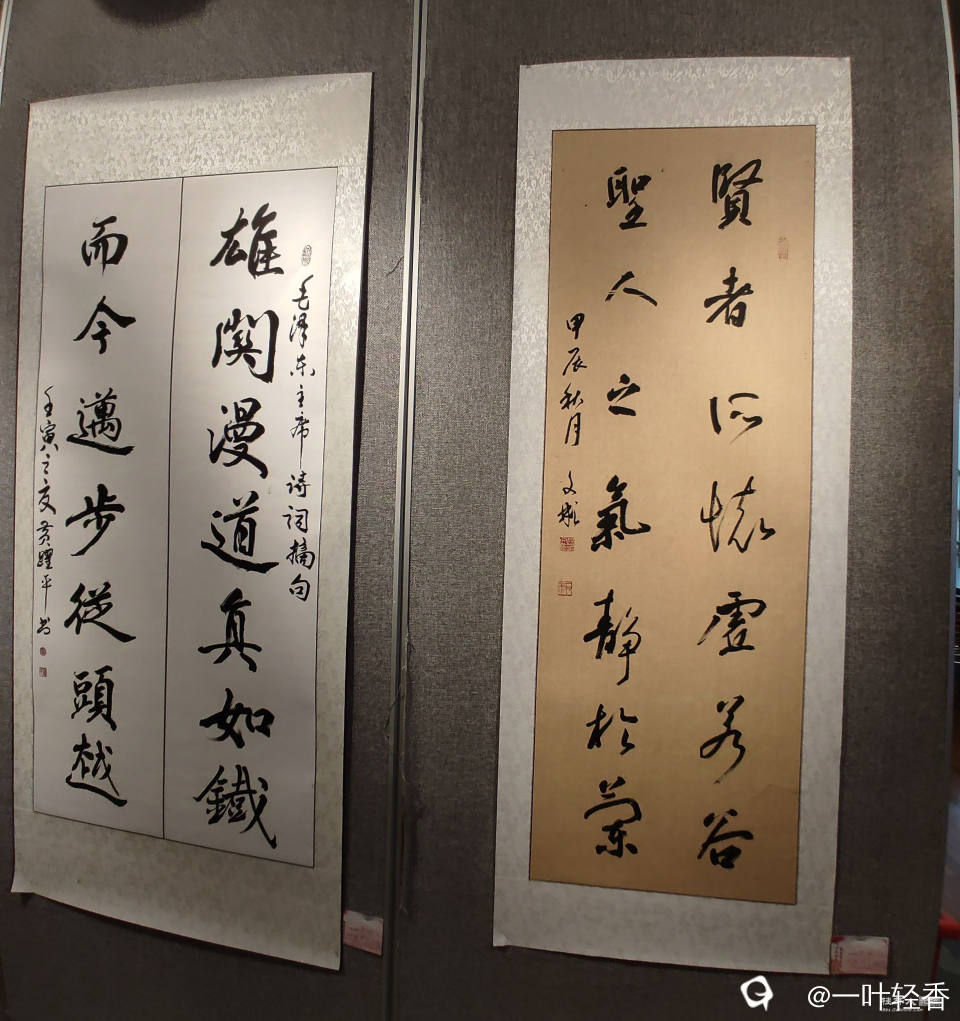 賢者所懷虛若谷
聖人之氣靜於蘭
甲辰秋月
毛澤东主席诗词摘句
雄関漫道真如鐵
而今邁步從頭越
壬寅之夏黄躍平书
@一叶轻香